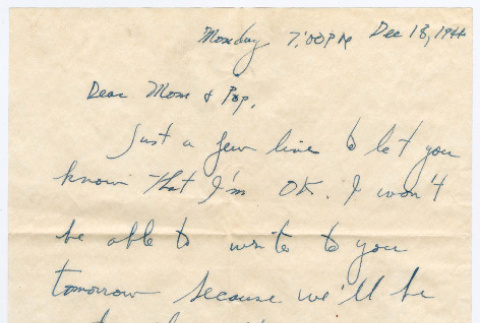 Monday 7:00PM Dec 18, 1944
Dear Mom & Pop,
Just a few line to let you
know that I'm OK. I won't
be able to write to you
tomorrow because we'll be